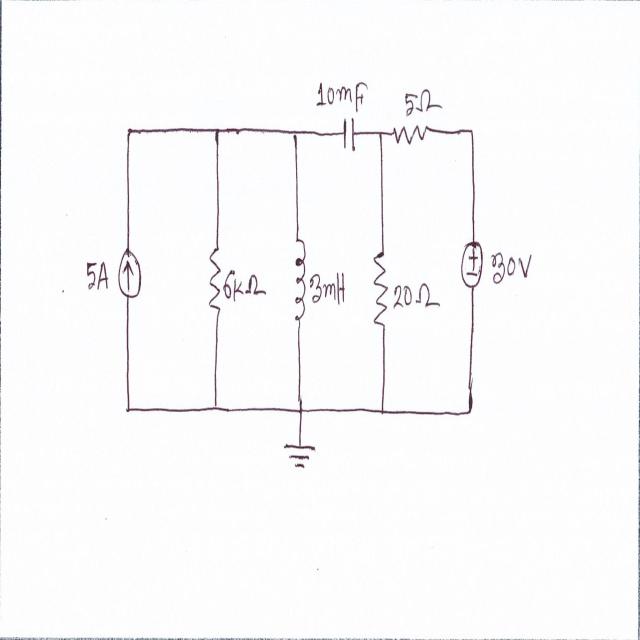 10mF
5Ω
5A
6kΩ
3mH
20Ω
30V